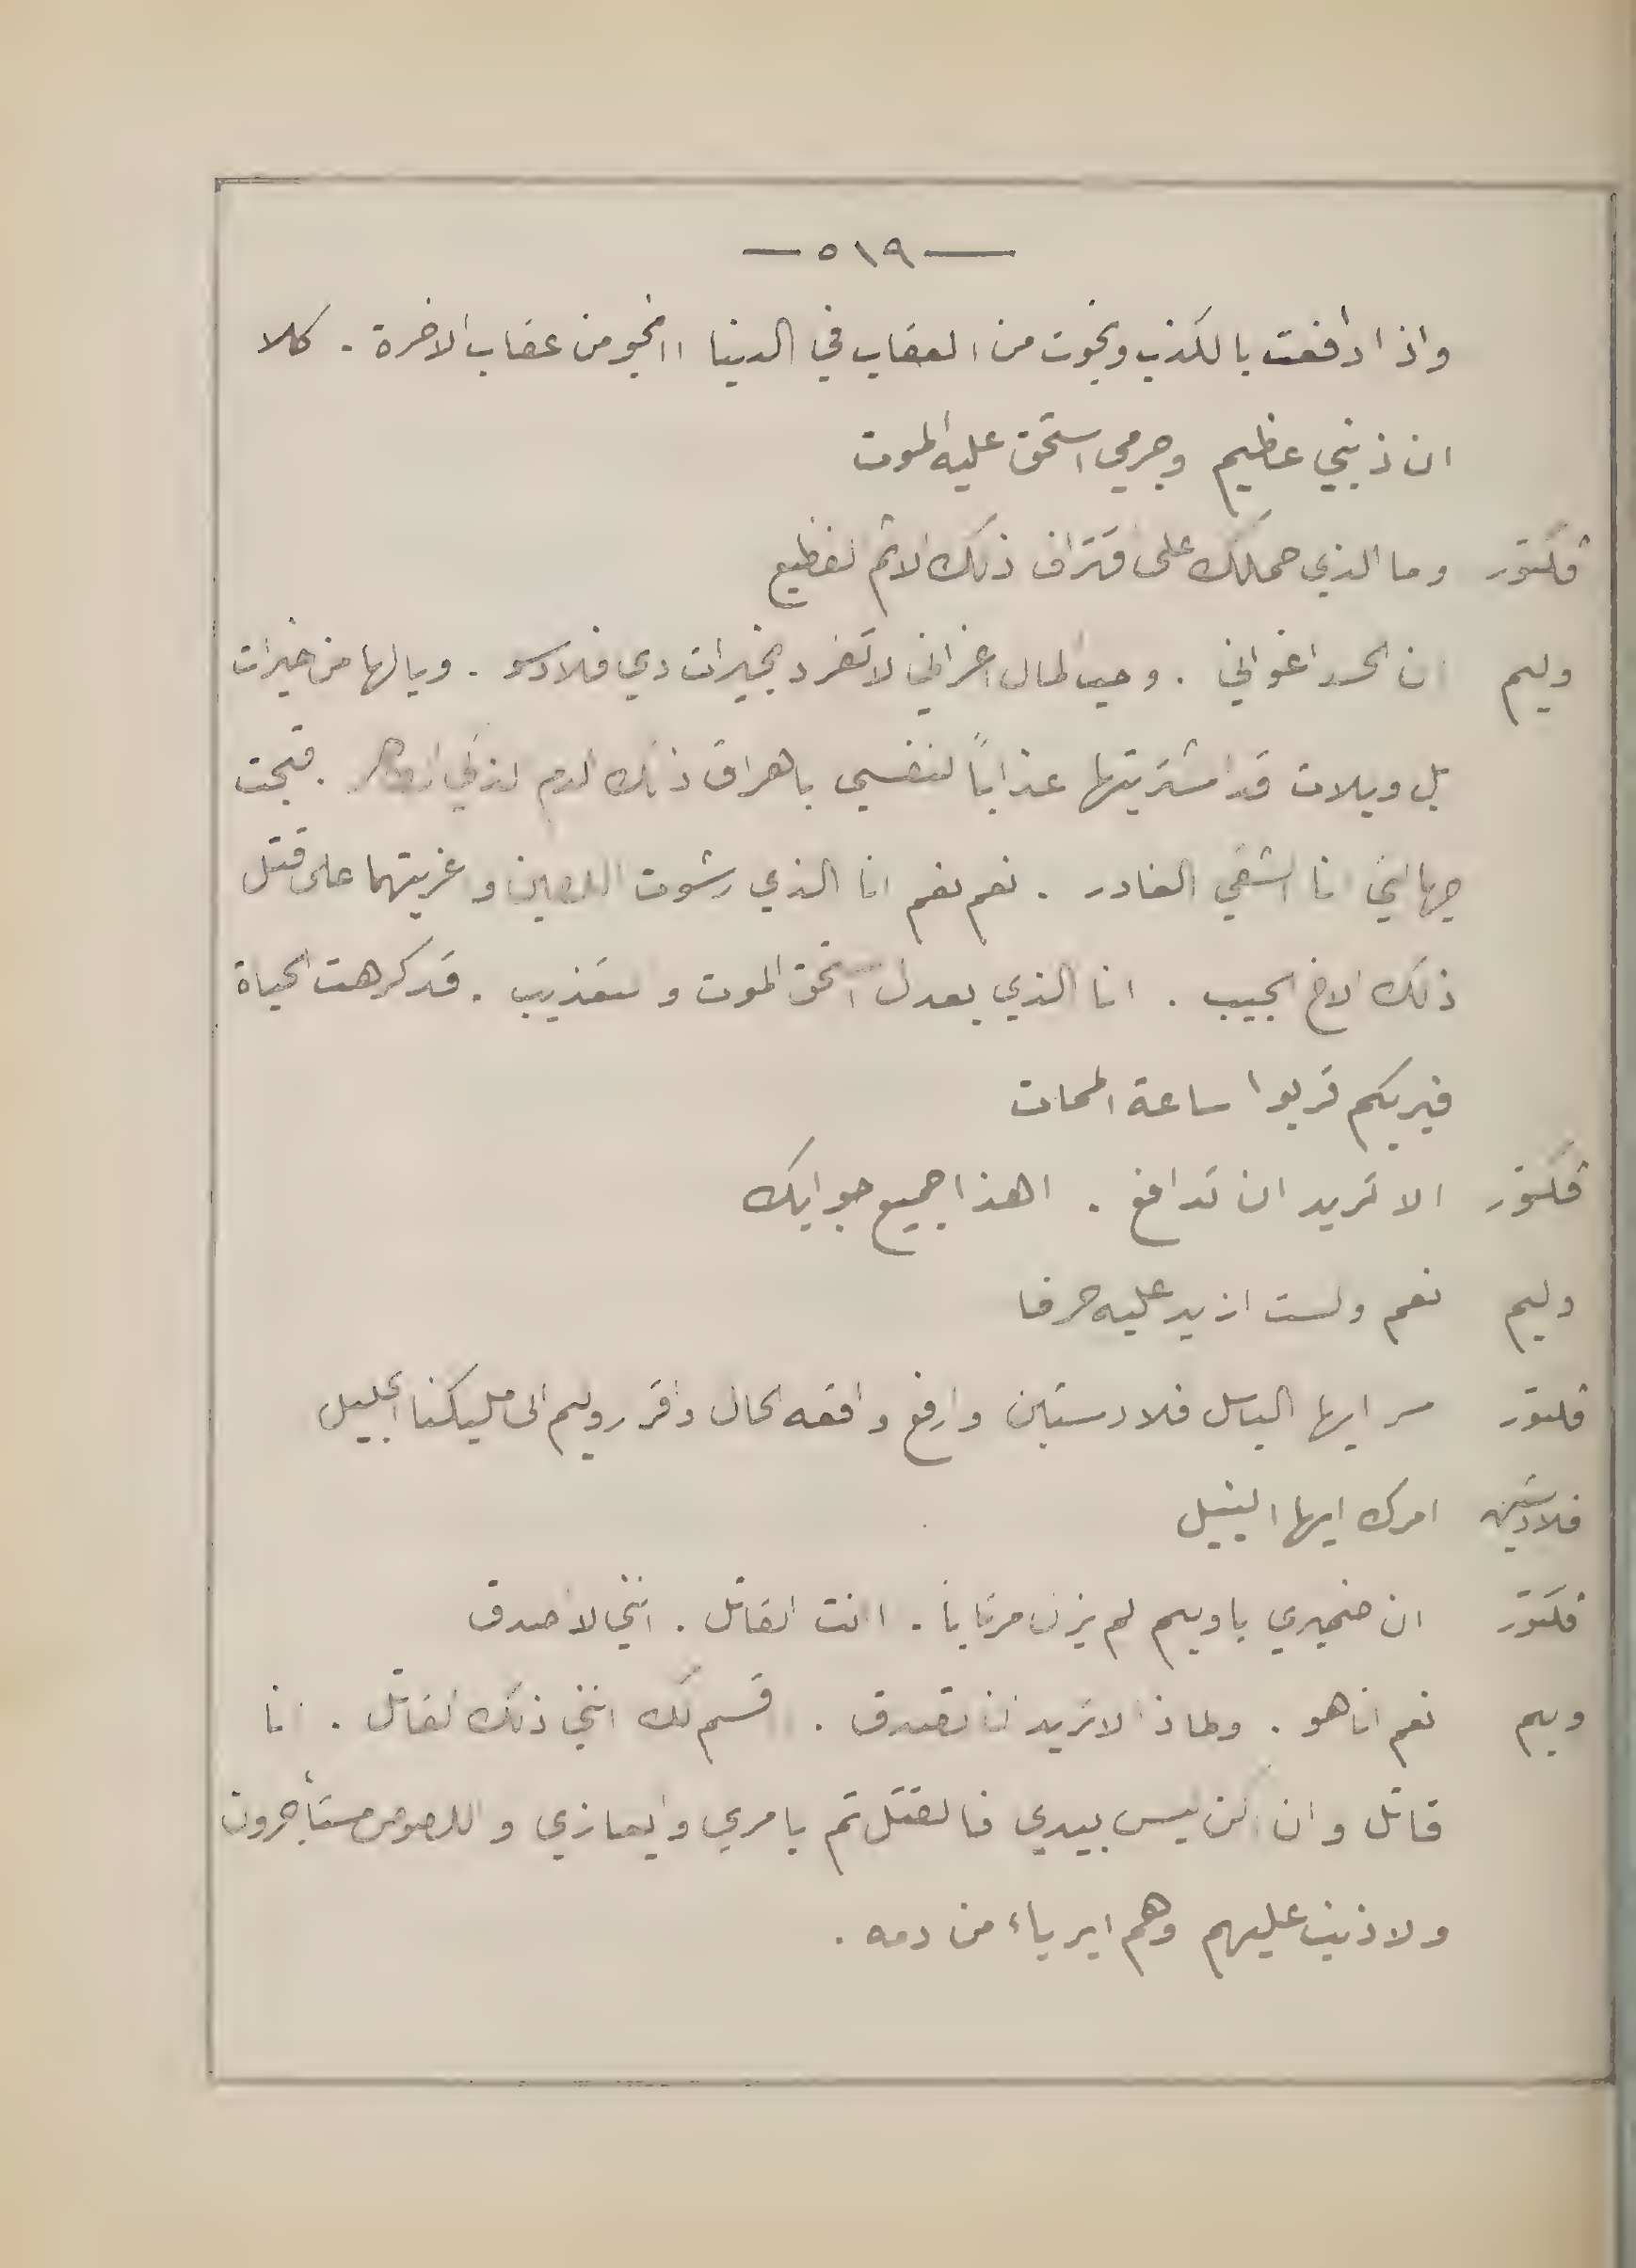 — ٥١٩ —
واذا دافعت بالكذب ونجوت من العقاب في الدنيا اانجو من عقاب الاخرة . كلا
ان ذنبي عظيم وجرمي استحق عليه الموت
فكتور وما الذي حملك على قتراف ذلك الاثم لفظيع
وليم ان الحسد اغواني . وحب المال اغراني لاتفرد بخيرات دي فلادسو . ويالها من خيرات
بل ويلات قد اشتريتها عذاباً لنفسي باهراق ذلك الدم لذكي . فبحت
جهاني انا الشقي الغادر . نعم نعم انا الذي رشوت اللصين واغريتهما على قتل
ذلك الاخ الحبيب . انا الذي بعدل استحق الموت والتعذيب . قد كرهت الحياة
فبربكم قربوا ساعة الممات
فكتور الا تريد ان تدافع . اهذا جميع جوابك
وليم نعم ولست ازيد عليه حرفا
فكتور سر ايها الباسل فلادستين وارفع واقعه الحال واقرار وليم الى مليكنا الجليل
فلادستين امرك ايها النبيل
فكتور ان ضميري ياوليم لم يزل مرتابا . اانت القاتل . انني لا صدق
وليم نعم انا هو . ولماذا لاتريد ان تصدق . اقسم لك انني ذلك القاتل . انا
قاتل وان لكن ليس بيدي فالقتل تم بامري وايعازي واللصوص مستأجرون
ولا ذنب عليهم وهم ابرياء من دمه .